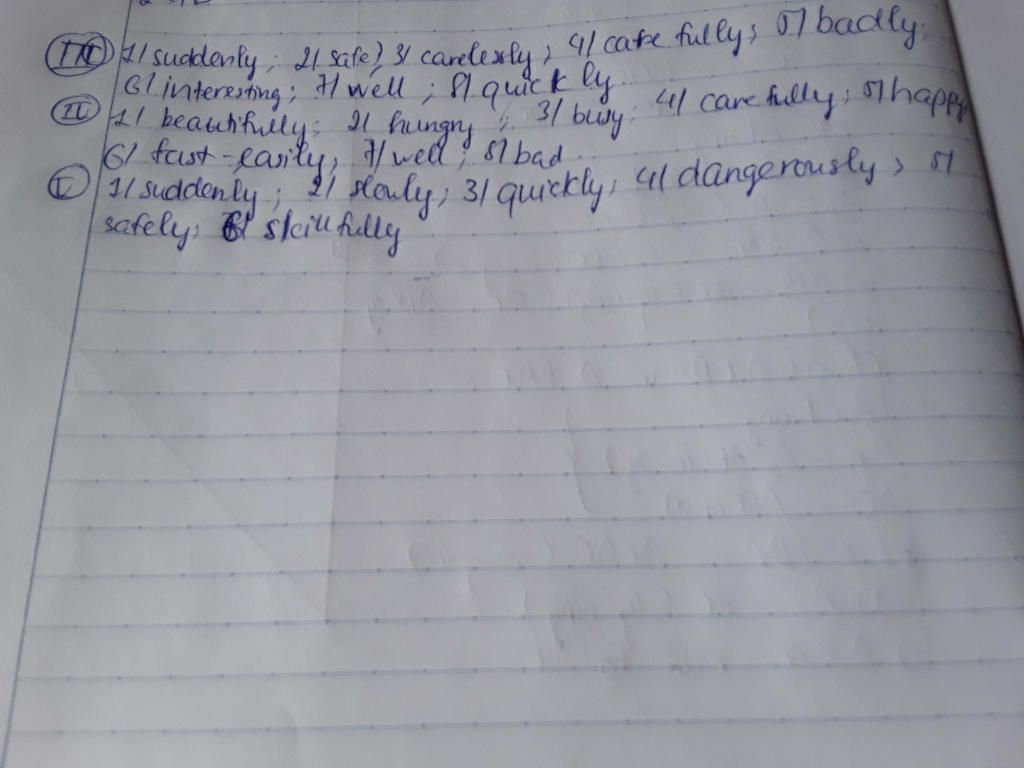 III 1/ suddenly; 2/ safe; 3/ carelessly; 4/ carefully; 5/ badly;
6/ interesting; 7/ well; 8/ quickly.
II 1/ beautifully; 2/ hungry; 3/ busy; 4/ carefully; 5/ happy
6/ fast-easily; 7/ well; 8/ bad.
V 1/ suddenly; 2/ slowly; 3/ quickly; 4/ dangerously; 5/
safely; 6/ skillfully